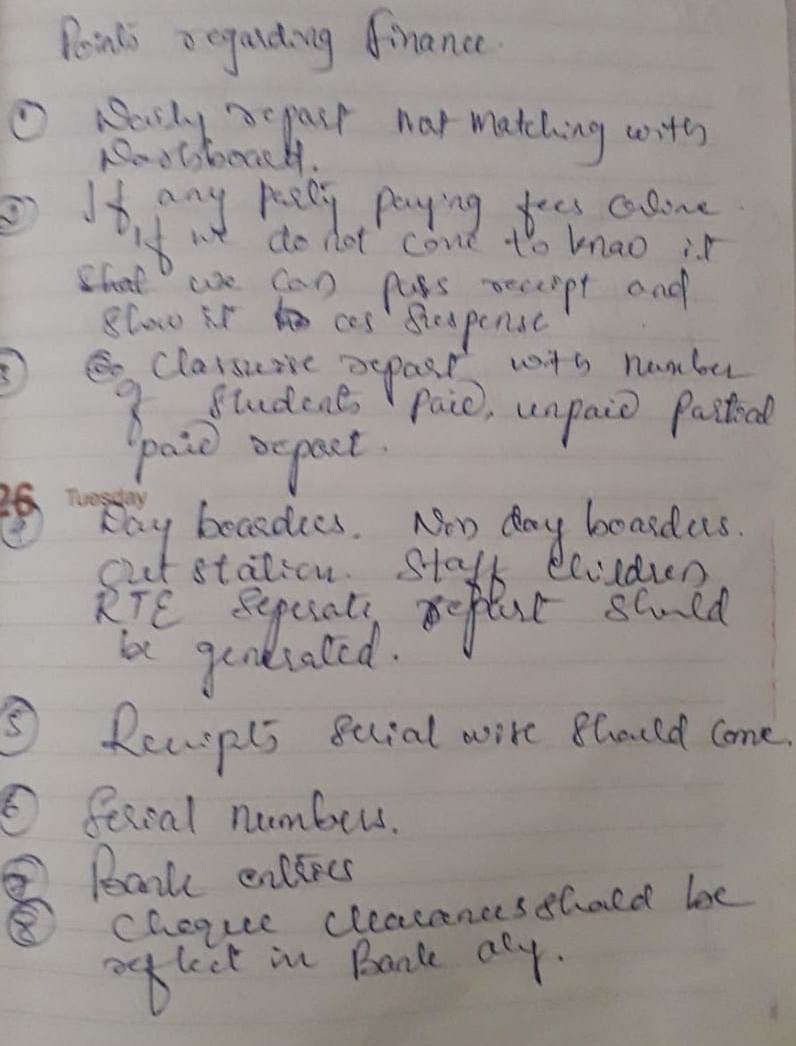 Points regarding finance.
① Daily repart not matching with
Dashboard.
② If any party paying fees online.
If we do not come to know it
that we can pass receipt and
show it as Suspense
③ Classwise repart with number
of students paid, unpaid Partial
paid repoet.
26 Tuesday
④ Day boarders. Non day boarders.
Out station. Staff children
RTE Seperate repart should
be generated.
⑤ Receipts serial wise should come.
⑥ Serial numbers.
⑦ Bank entries
⑧ Cheque clearances should be
reflect in Bank